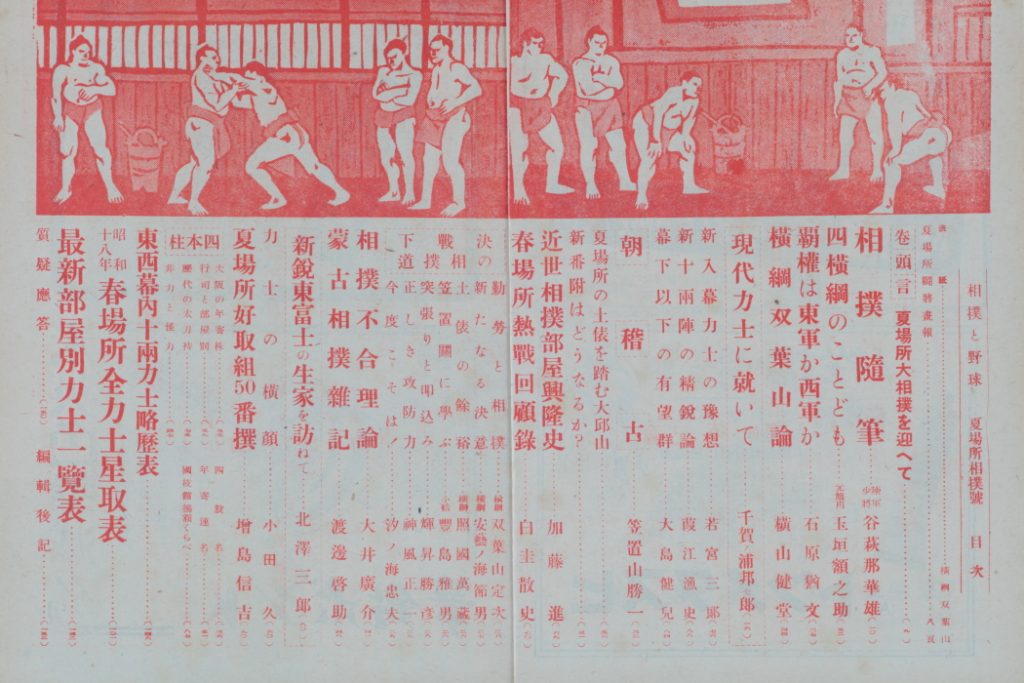 相撲と野球 夏場所相撲號 目次
表紙 横綱双葉山
夏場所鬪將畫報
卷頭言 夏場所大相撲を迎へて
相撲隨筆 陸軍少將 谷萩那華雄
四橫綱のことども 元熊川 玉垣額之助
覇權は東軍か西軍か 石原猶文
橫綱双葉山論 橫山健堂
現代力士に就いて 千賀ノ浦邦郎
新入幕力士の豫想 若宮三郎
新十兩陣の精銳論 葭江漁史
幕下以下の有望群 大島健兒
朝稽古 笠置山勝一
夏場所の土俵を踏む大邱山
新番附はどうなるか?
近世相撲部屋興隆史 加藤進
春場所熱戰回顧錄 白圭散史
決戰下の相撲道
勤勞と相撲 橫綱 双葉山定次
新たなる決意 橫綱 安藝ノ海節男
土俵の餘裕 橫綱 照國萬藏
笠置關に學ぶ 小結 豐島雅男
突張りと呷込み 輝昇勝彦
正しき攻防力 神風正一
今度こそは! 汐ノ海忠夫
相撲不合理論 大井廣介
蒙古相撲雜記 渡邊啓助
新銳東富士の生家を訪ねて 北澤三郎
力士の橫顏 小田久
夏場所好取組50番撰 增島信吉
四本柱
大阪の年寄株
行司と部屋別
歷代の太刀持
非力と强力
四股名
年寄連名
國技館感額くらべ
東西幕內十兩力士略歷表
昭和十八年 春場所全力士星取表
最新部屋別力士一覽表
質疑應答
編輯後記